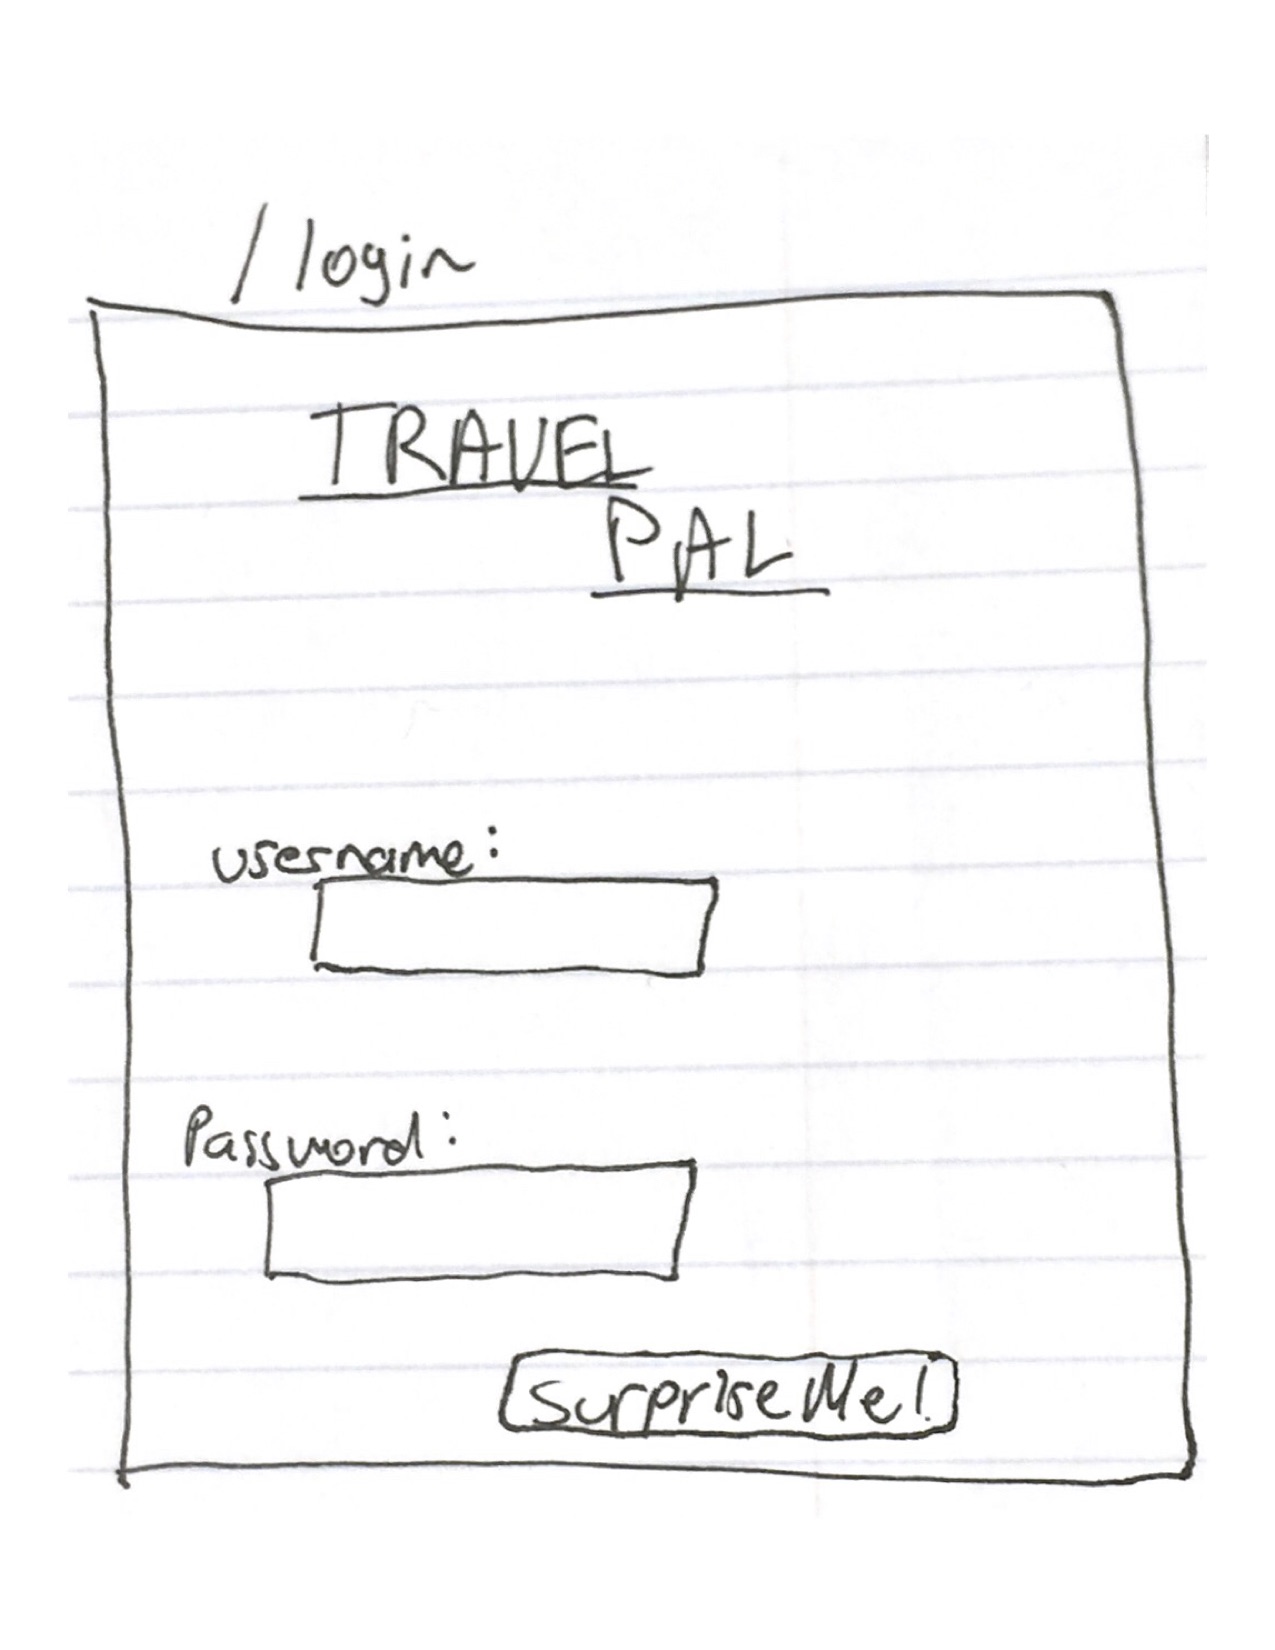 /login
TRAVEL
PAL
username:
Password:
Surprise Me!